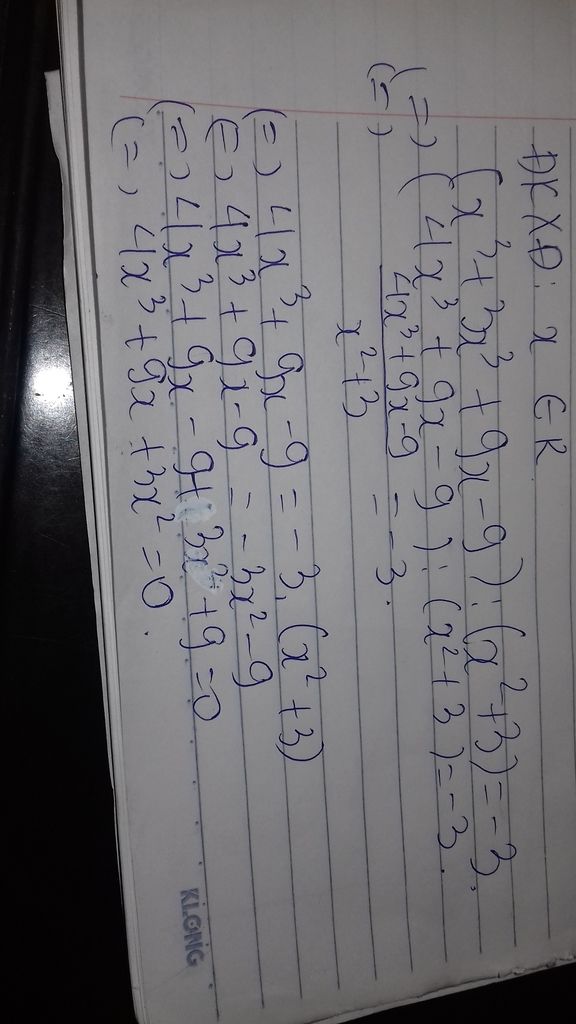 ĐKXĐ: x ∈ R
(x³ + 3x³ + 9x - 9) : (x² + 3) = -3.
(=) (4x³ + 9x - 9) : (x² + 3) = -3.
(=) 4x³ + 9x - 9 / x² + 3 = -3.
(=) 4x³ + 9x - 9 = -3. (x² + 3)
(=) 4x³ + 9x - 9 = -3x² - 9
(=) 4x³ + 9x - 9 + 3x² + 9 = 0
(=) 4x³ + 9x + 3x² = 0.
KLONG